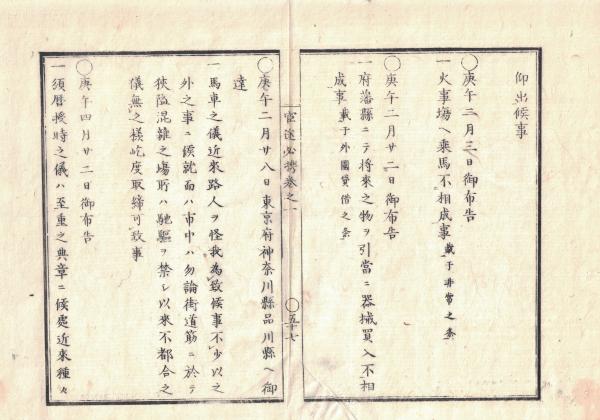 仰出候事
〇庚午二月三日御布告
一火事場ヘ乗馬不相成事載于非常之条
〇庚午二月廿二日御布告
一府藩縣ニテ将来之物ヲ引當ニ器械買入不相
成事載于外國貸借之条
官途必携巻之一
〇五十七
〇庚午二月廿八日東京府神奈川縣品川縣ヘ御
達
一馬車之儀近来路人ヲ怪我為致候事不少以之
外之事ニ候就而ハ市中ハ勿論街道筋ニ於テ
狹隘混雑之場所ハ馳駆ヲ禁シ以来不都合之
儀無之様屹度取締可致事
〇庚午四月廿二日御布告
一須暦授時之儀ハ至重之典章ニ候處近来種々